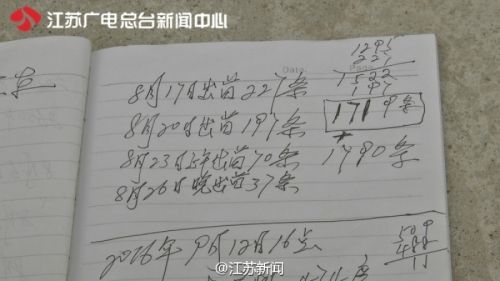 江苏广电总台新闻中心
Date:
1295
227
1522
197
8月17日出苗227条
1719条
8月20日出苗197条
1790条
8月23日上午出苗70条
8月26日晚出苗37条
2016年9月12月16点
@江苏新闻